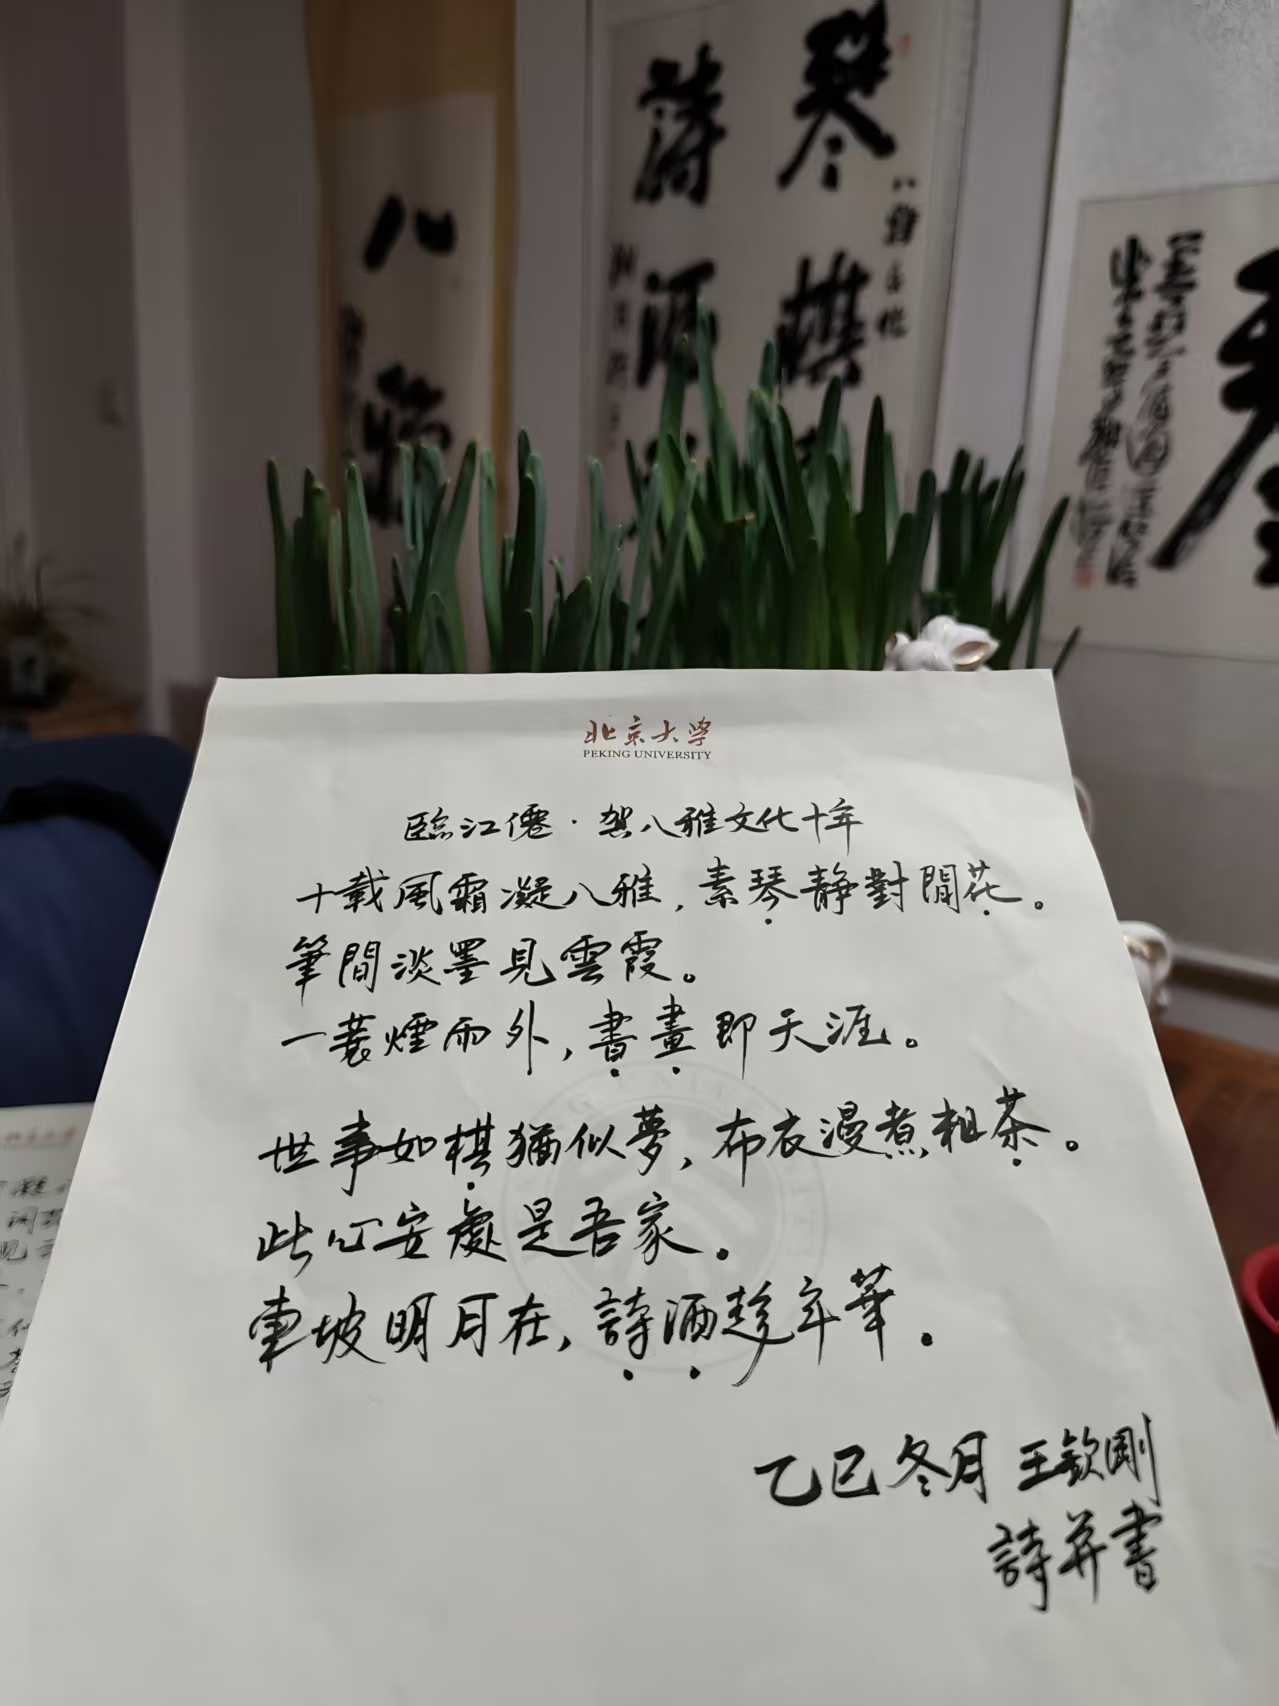 琴棋
詩酒
八雅文化
八雅
北京大学
PEKING UNIVERSITY
臨江僊·賀八雅文化十年
十載風霜凝八雅，素琴静對閒花。
筆間淡墨見雲霞。
一蓑煙雨外，書畫即天涯。
世事如棋猶似夢，布衣漫煮粗茶。
此心安處是吾家。
東坡明月在，詩酒趁年華。
乙巳冬月 王欽剛
詩并書